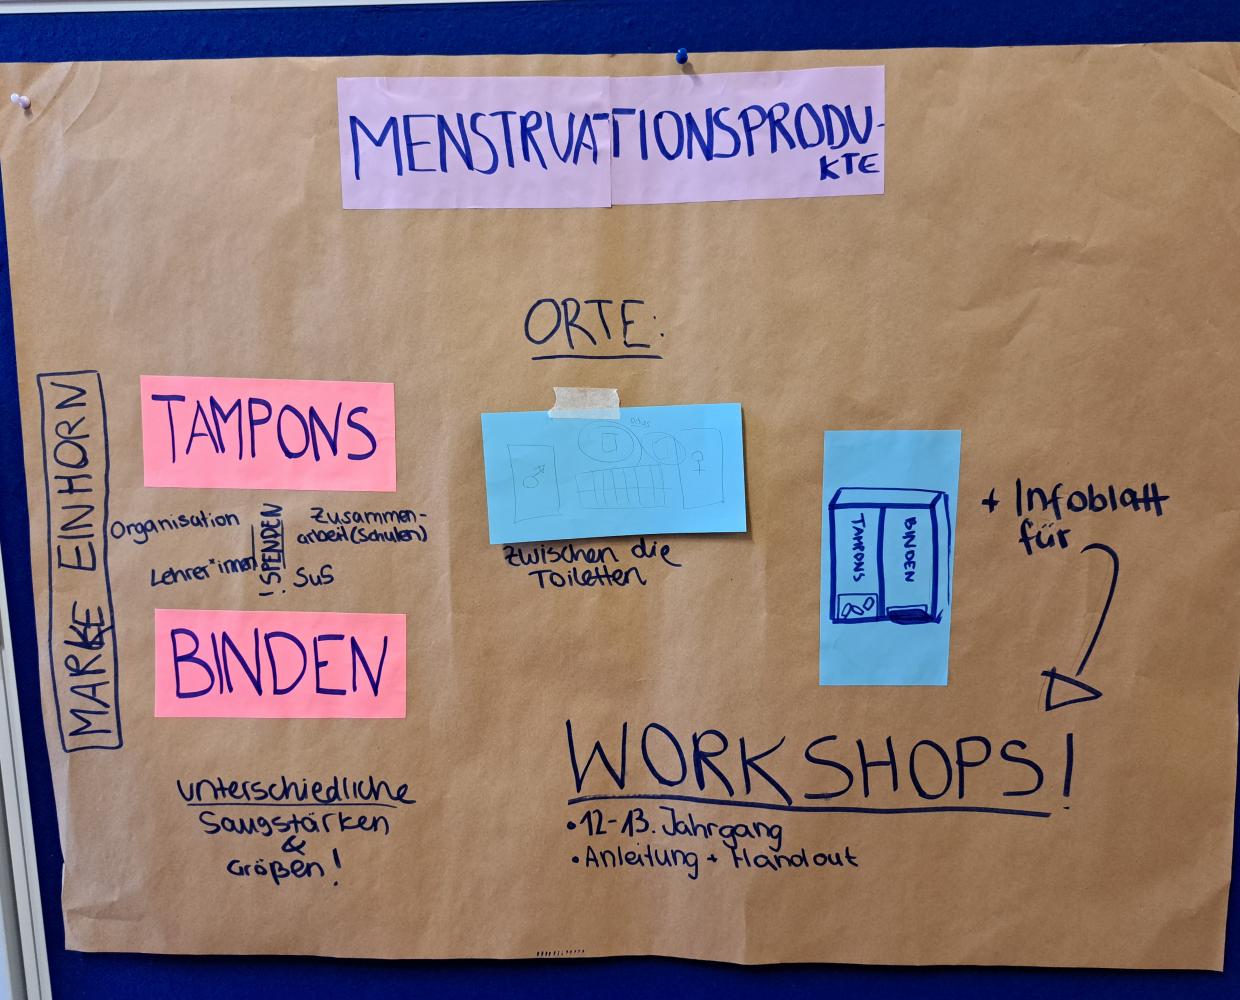 MENSTRUATIONSPRODU-
KTE
ORTE:
MARKE EINHORN
TAMPONS
Organisation
Lehrer*innen
!SPENDEN!
Zusammen-
arbeit (Schulen)
SuS
BINDEN
unterschiedliche
Saugstärken
&
Größen!
zwischen die
Toiletten
TAMPONS
BINDEN
+ Infoblatt
für
WORKSHOPS!
•12-13. Jahrgang
•Anleitung + Handout